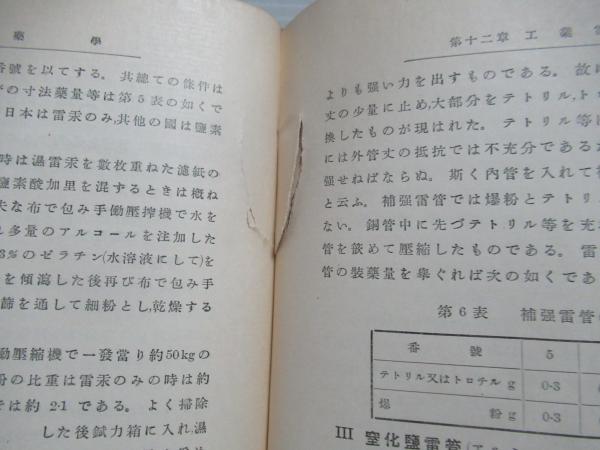 藥 學
番號を以てする。 其總ての條件は
の寸法藥量等は第5表の如くで
日本は雷汞のみ,其他の國は鹽素
時は濕雷汞を數枚重ねた濾紙の
鹽素酸加里を混ずるときは概ね
夫な布で包み手働壓搾機で水を
多量のアルコールを注加した
3%のゼラチン(水溶液にして)を
を傾瀉した後再び布で包み手
篩を通して細粉とし,乾燥する
働壓縮機で一發當り約50kgの
粉の比重は雷汞のみの時は約
では約 2·1 である。 よく掃除
した後鉽力箱に入れ,濕
第十二章 工 業
よりも强い力を出すものである。 故に
丈の少量に止め,大部分をテトリル,ト
換したものが現はれた。 テトリル等
には外管丈の抵抗では不充分であるか
强せねばならぬ。 斯く內管を入れて
と云ふ。 補强雷管では爆粉とテトリ
ない。 銅管中に先づテトリル等を充
管を嵌めて壓縮したものである。 雷
管の裝藥量を擧ぐれば次の如くであ
第6表 補强雷管の
番 號 5
テトリル又はトロチル g 0·3 0
爆 粉 g 0·3 0
III 窒化鹽雷管